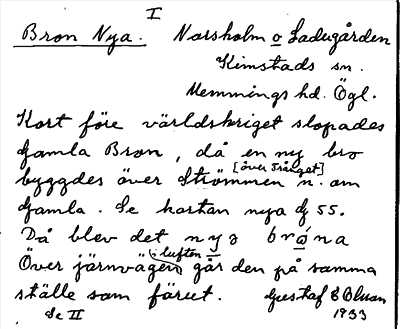 I
Bron Nya. Norsholm o Ladugården
Kimstads sn.
Memmings hd. Ögl.
Kort före världskriget slopades
Gamla Bron, då en ny bro
[över Trånget]
byggdes över Strömmen n. om
Gamla. Se kartan nya G 55.
Då blev det nya bróna
i luften
Över järnvägen går den på samma
ställe som förut. Gustaf E Olsson
Se II 1933